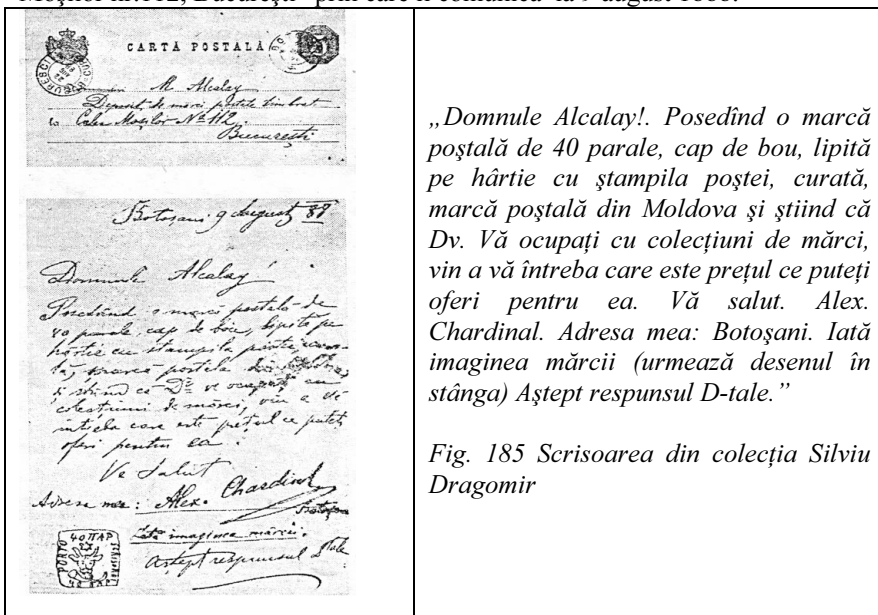 Moşilor nr.112, Bucureşti” prin care îi comunică la 9 august 1888:
CARTĂ POSTALĂ
M Alcalay
Deposit de marci postale timbrat
to Calea Moşilor No 112.
Bucuresti
Botoşani 9 August 88
Domnule Alcalay!
Posedând o marcă postală de
40 parale, cap de bou, lipită pe
hârtie cu stampila poştei, cura-
tă, marcă postală din
şi stiind că Dv ve ocupaţi cu
colecţiuni de mărci, vin a vă
intreba care este preţul ce puteţi
oferi pentru ea.
Ve Salut
Adresa mea: Alex. Chardinal
Botoşani
Iată imaginea mărcii.
Aştept respunsul D-tale
40 ПАР
PORTO
„Domnule Alcalay!. Posedînd o marcă
poştală de 40 parale, cap de bou, lipită
pe hârtie cu ştampila poştei, curată,
marcă poştală din Moldova şi ştiind că
Dv. Vă ocupaţi cu colecţiuni de mărci,
vin a vă întreba care este preţul ce puteţi
oferi pentru ea. Vă salut. Alex.
Chardinal. Adresa mea: Botoşani. Iată
imaginea mărcii (urmează desenul în
stânga) Aştept respunsul D-tale.”
Fig. 185 Scrisoarea din colecţia Silviu
Dragomir